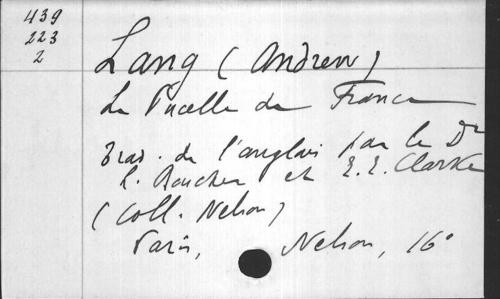 439
223
2
Lang (Andrew)
La Pucelle de France
Trad. de l'anglais par le Dr
L. Boucher et E. E. Clarke
(Coll. Nelson)
Paris, Nelson, 16°